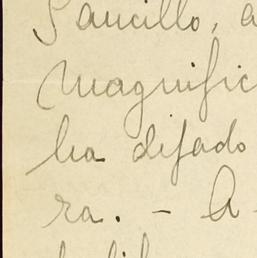 Saucillo, a
magnific
ha difado
ra. - A